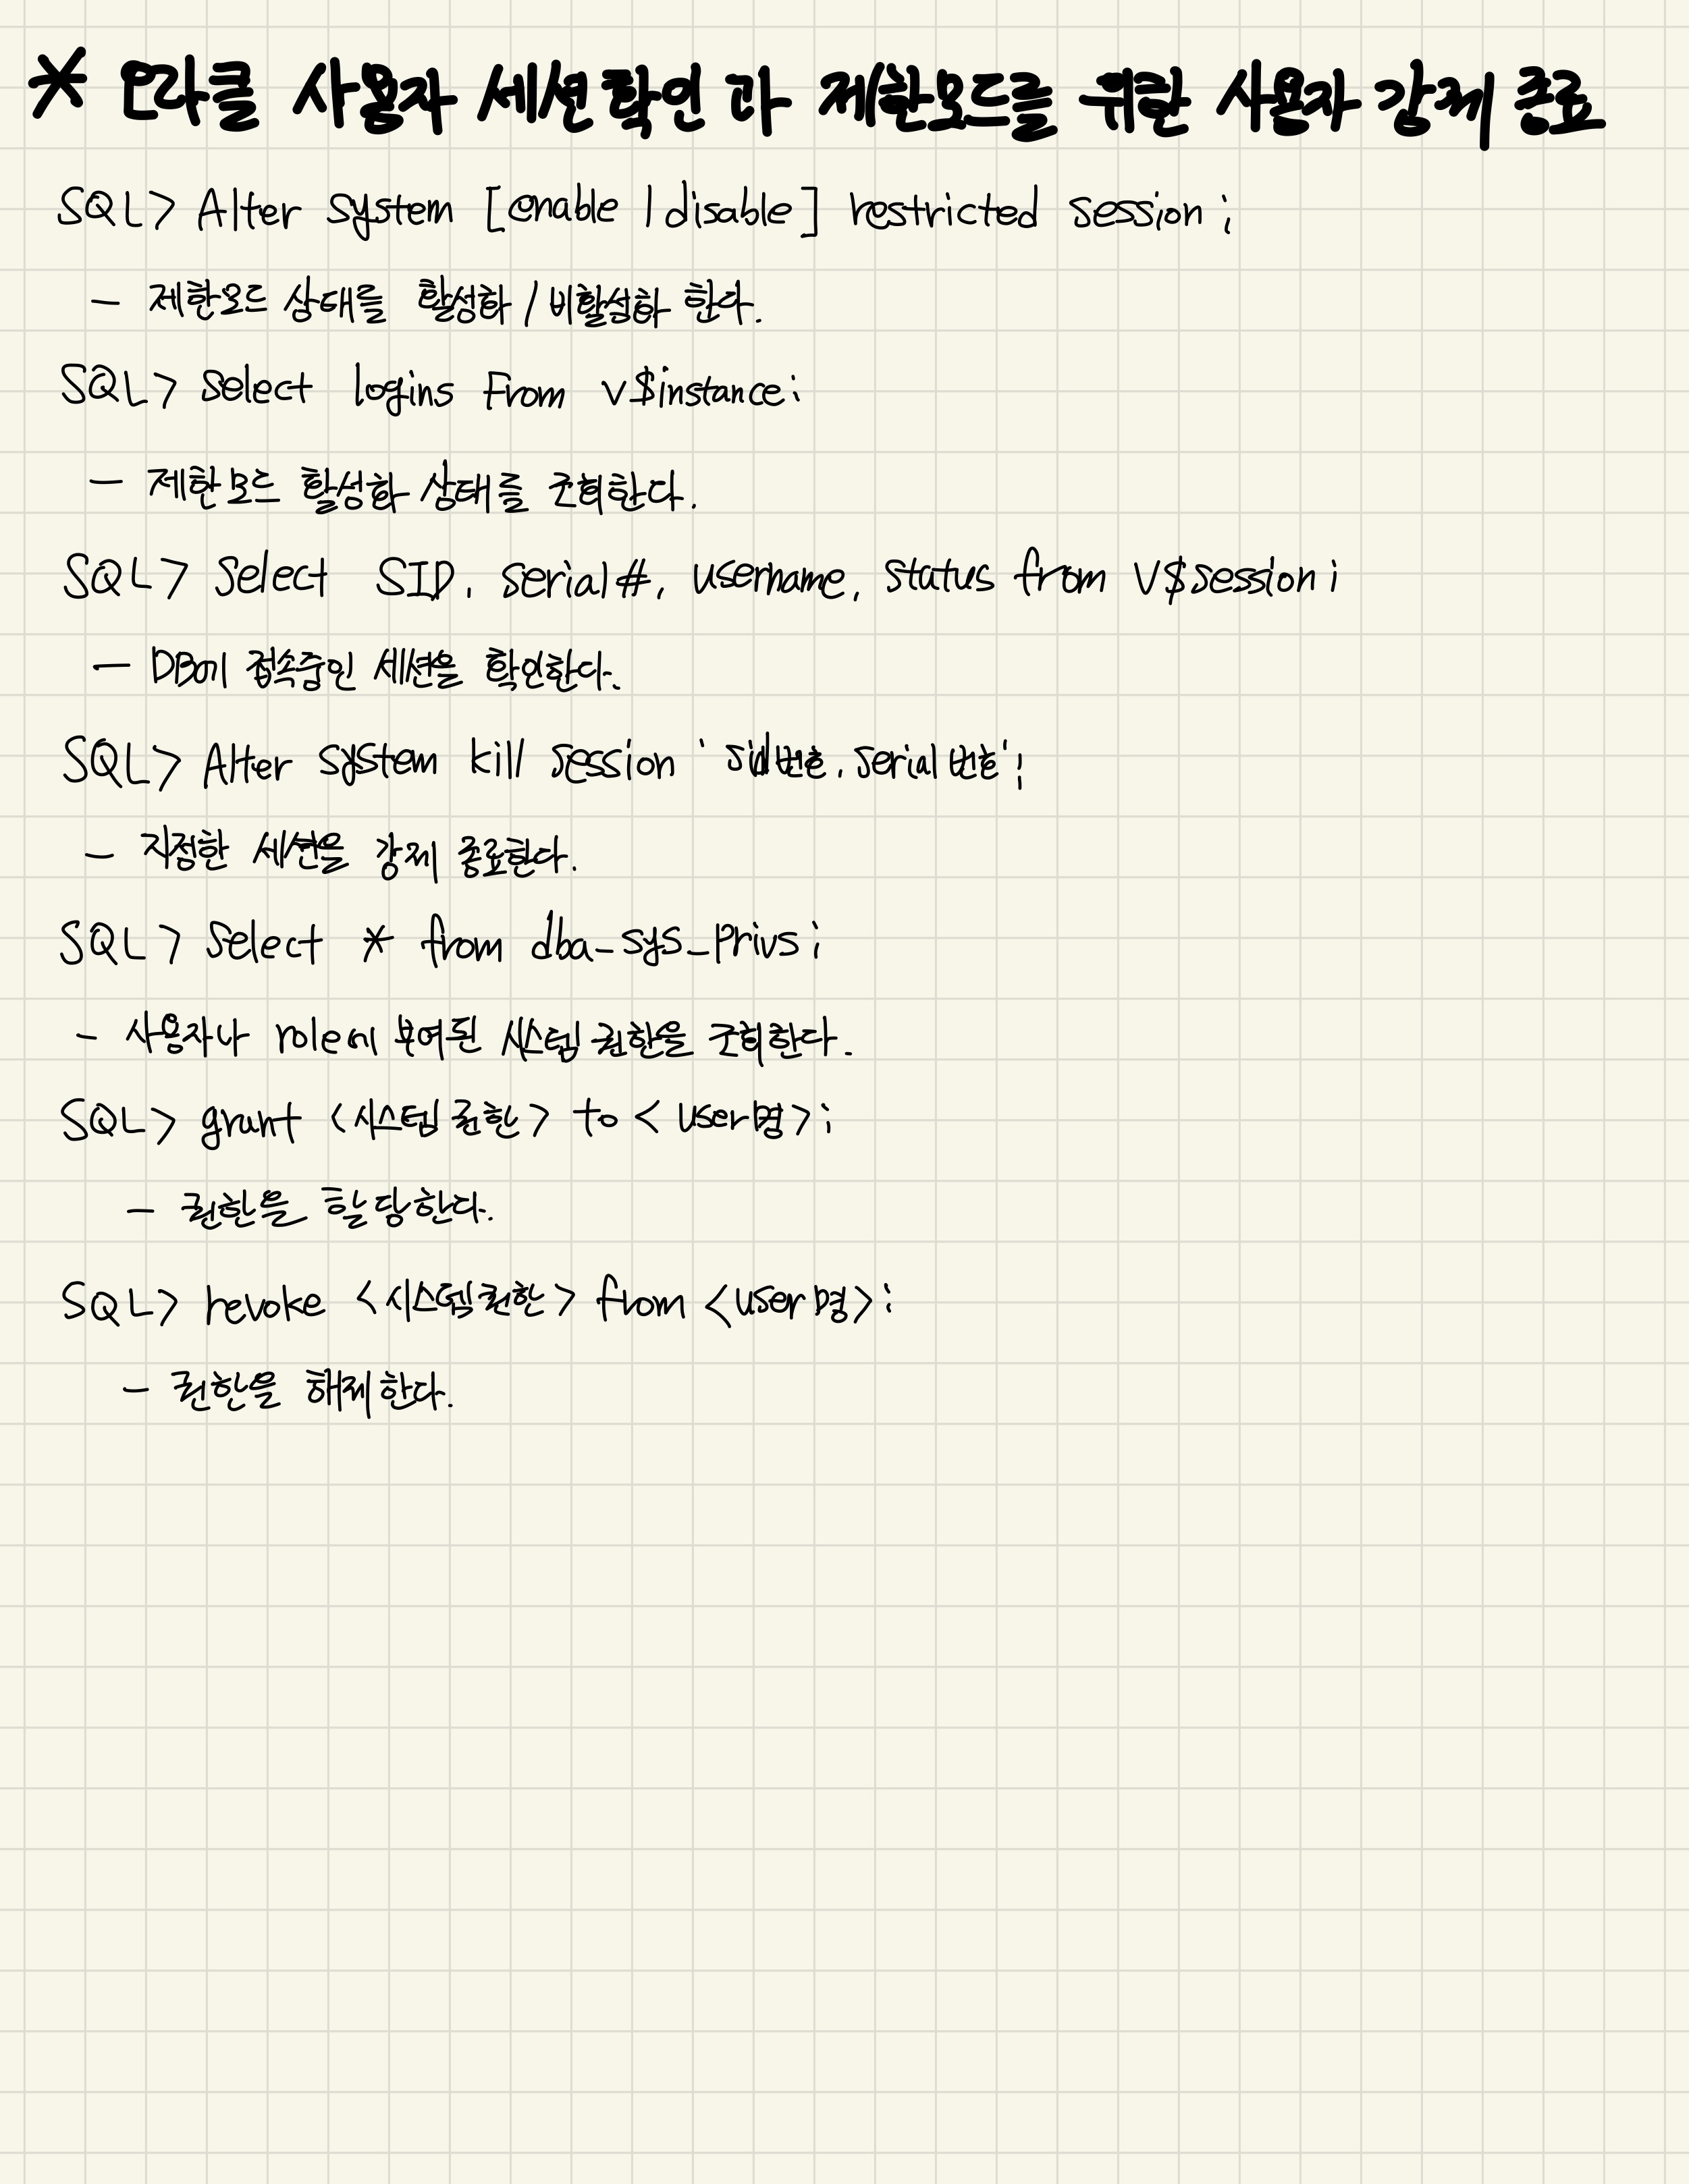 * 오라클 사용자 세션 확인 과 제한모드를 위한 사용자 강제 종료
SQL> Alter system [enable | disable] restricted session;
- 제한모드 상태를 활성화 / 비활성화 한다.
SQL> Select logins From v$instance;
- 제한모드 활성화 상태를 조회한다.
SQL> Select SID, serial#, username, status from V$session;
- DB에 접속중인 세션을 확인한다.
SQL> Alter system kill session 'sid번호, serial번호';
- 지정한 세션을 강제 종료한다.
SQL> Select * from dba_sys_privs;
- 사용자나 role에 부여된 시스템 권한을 조회한다.
SQL> grant <시스템 권한> to <user명>;
- 권한을 할당한다.
SQL> revoke <시스템권한> from <user명>;
- 권한을 해제한다.